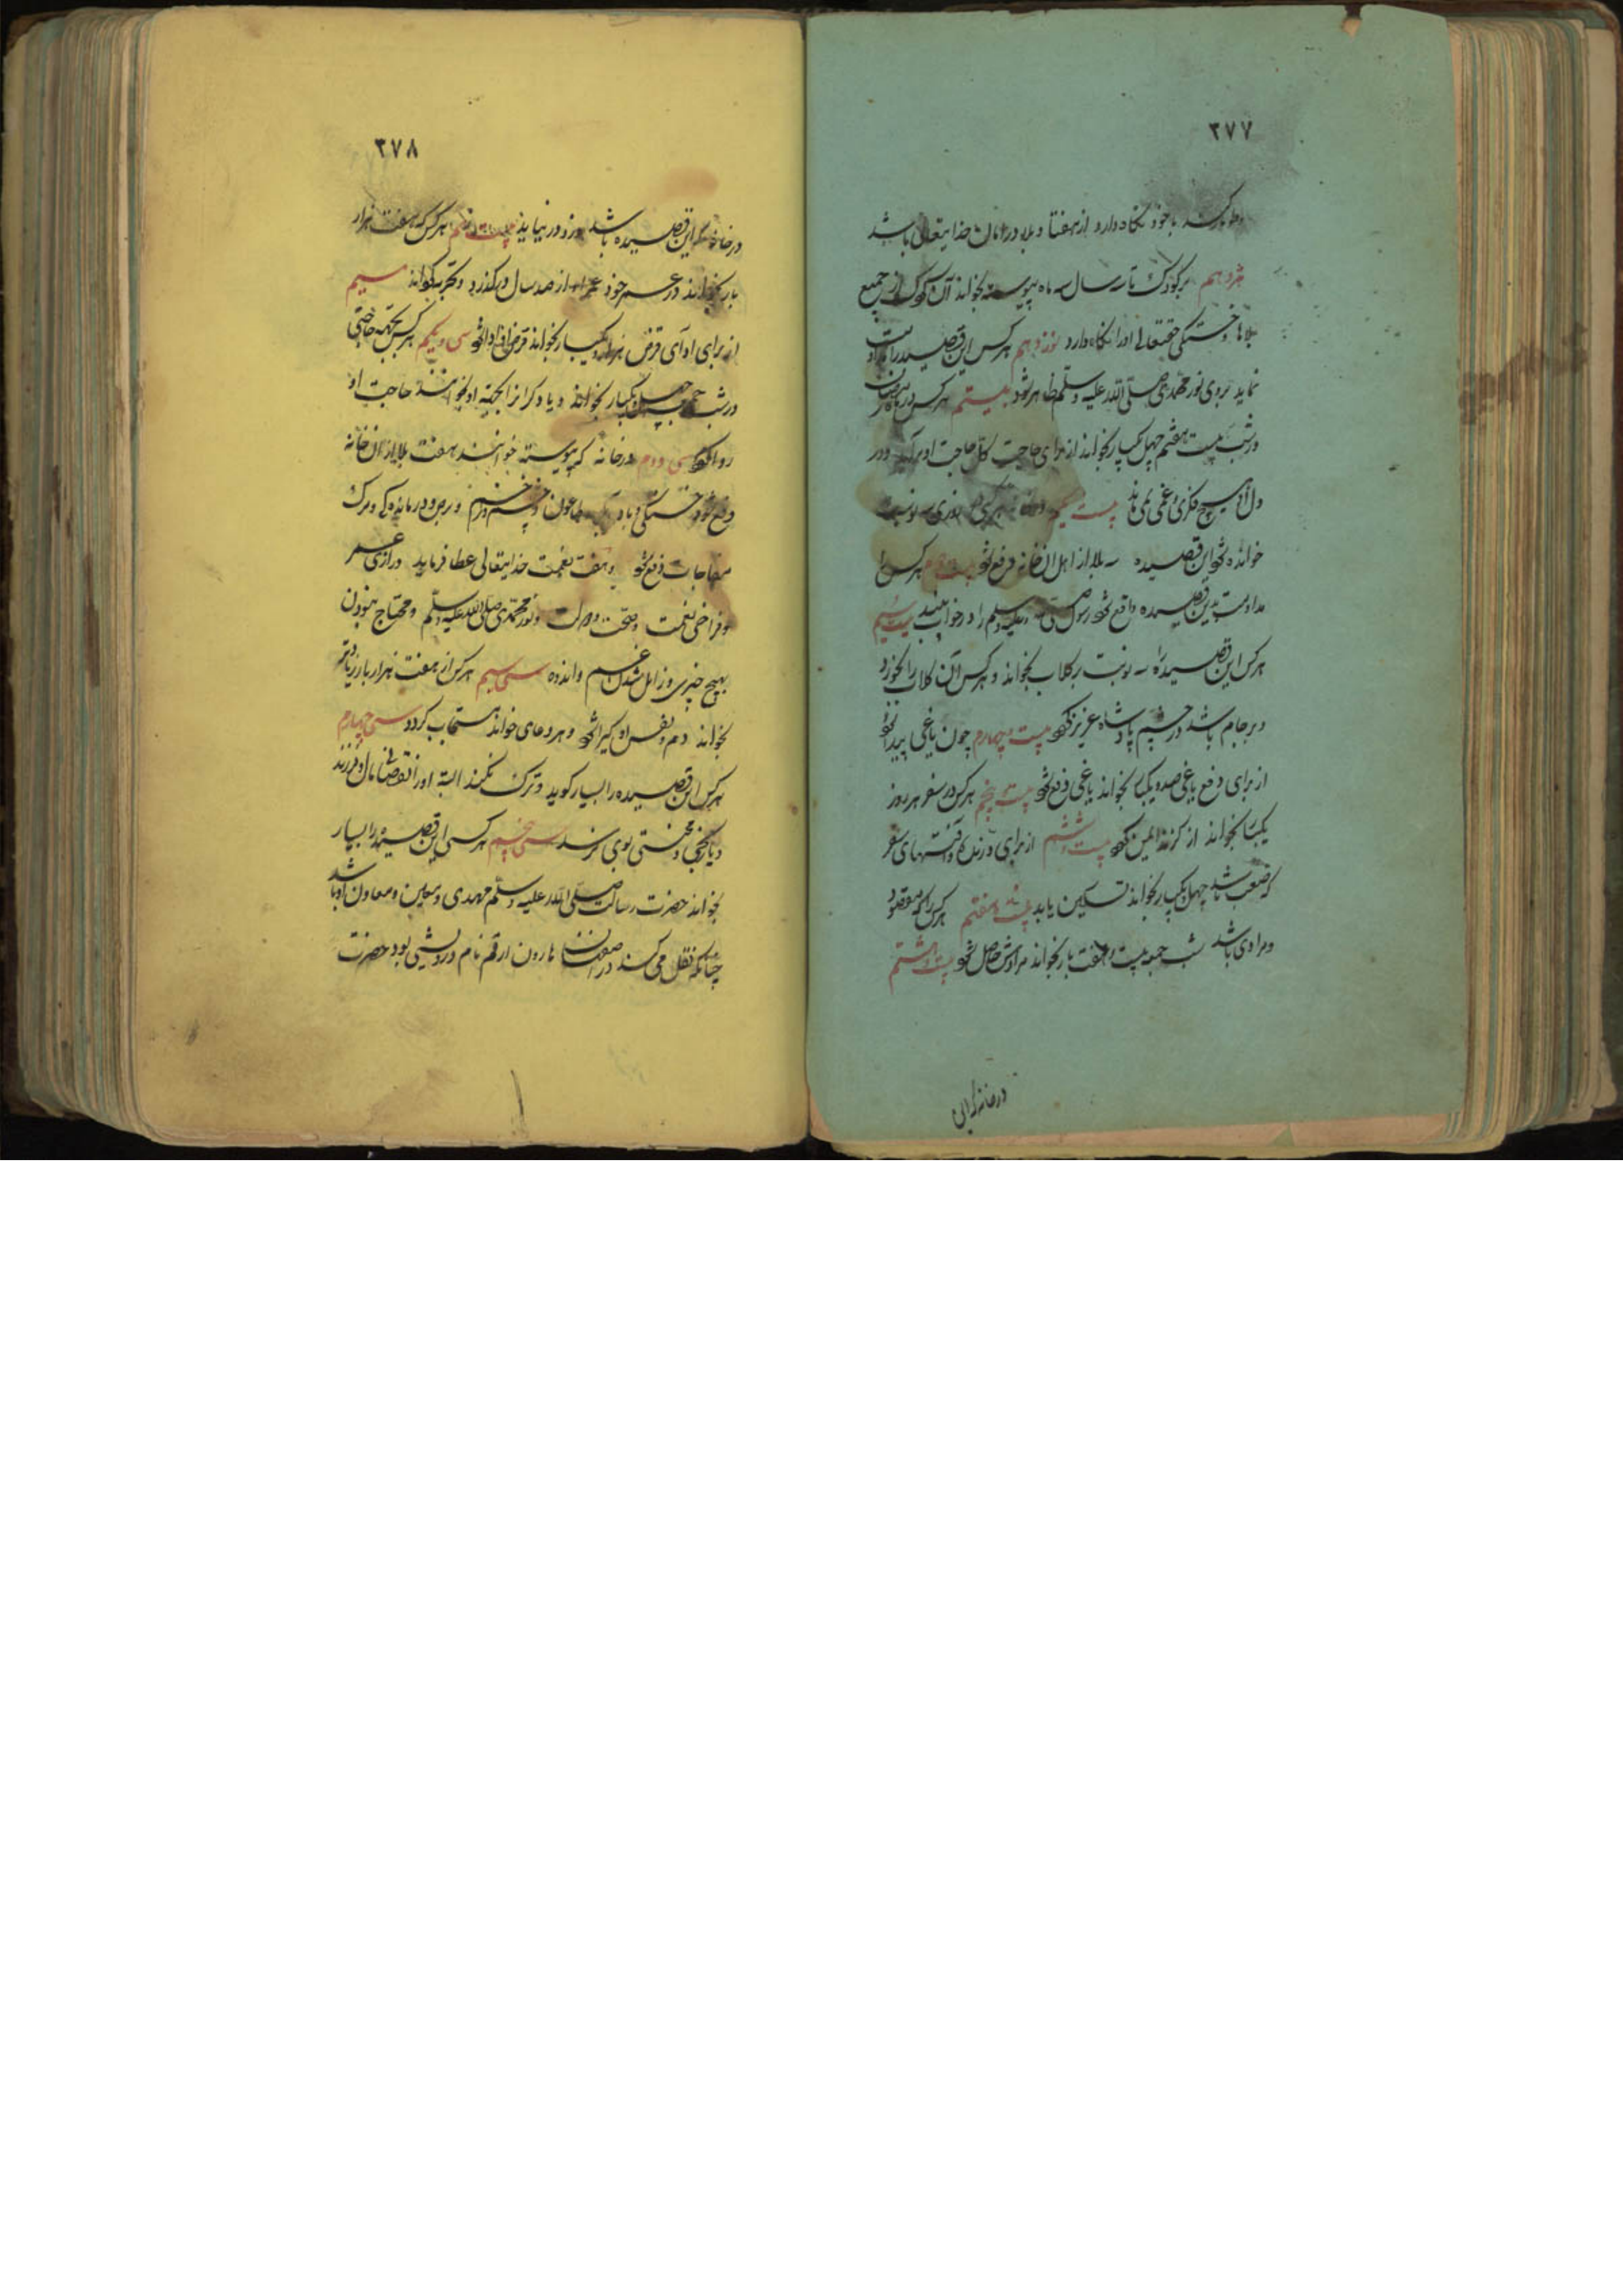 ٢٧٧
با خود نگاه دارد از هفتاد بلا در امان خدایتعالی باشد
هژدهم بر کودک تا سه سال سه ماه پیوسته بخواند آن کودک از جمیع
بلاها و خستگی حقتعالی او را نگاه دارد نوزدهم هر کس این قصیده را
نماید بروی نور محمدی صلی الله علیه وسلم ظاهر شود بیستم هر کس در
در شب بیست هفتم چهل یکبار بخواند از برای حاجت کل حاجت او برآید و در
دل او هیچ فکری و غمی نماند بیست یکم
خوانده شود این قصیده سه بلا از اهل آن خانه دفع شود بیست دوم هر کس را
مداومت بدین قصیده واقع شود رسول صلی الله علیه وسلم را در خواب بیند بیست سیم
هر کس این قصیده را سه نوبت بر گلاب بخواند و هر کس آن گلاب را بخورد
و بر جام باشد در چشم پادشاه عزیز شود بیست چهارم چون یاغی پیدا شود
از برای دفع یاغی صد و یکبار بخواند یاغی دفع شود بیست پنجم هر کس در سفر هر روز
یکبار بخواند از گزند ایمن شود بیست و ششم از برای درندگان و آفتهای سفر
که صعب باشد چهل یکبار بخواند تسکین یابد بیست و هفتم هر کس را که مقصود
و مرادی باشد شب جمعه بیست و هفت بار بخواند مرادش حاصل شود بیست و هشتم
در خانه که این
٢٧٨
در خانه که این قصیده باشد دزد در نیاید بیست نهم هر کس که هفت هزار
بار بخواند در عمر خود عمر او از صد سال در گذرد سیم
از برای ادای قرض هزار و یکبار بخواند قرض او ادا شود سی و یکم هر کس بجهة حاجتی
در شب جمعه چهل یکبار بخواند و یا دیگران از بجهة او بخوانند حاجت او
روا شود سی و دوم در خانه که پیوسته خوانند هفت بلا از آن خانه
دفع شود خستگی و باد طاعون و چشم زخم و درماندگی و مرگ
مفاجات دفع شود و هفت نعمت خدایتعالی عطا فرماید درازی عمر
و فراخی نعمت و صحت و دولت و نور محمدی صلی الله علیه وسلم و محتاج نبودن
بهیچ چیزی و زایل شدن غم و اندوه سی سیم هر کس از هفت هزار بار زیادتر
بخواند دم و نفس او گیرا شود و هر دعای خواند مستجاب گردد سی چهارم
هر کس این قصیده را بسیار گوید و ترک نکند البته او را نقصانی مال و فرزند
و یا رنجی و محنتی بوی نرسد سی پنجم هر کس این قصیده را بسیار
بخواند حضرت رسالت صلی الله علیه وسلم ممد وی و معین و معاون او باشد
چنانکه نقل می کنند در اصفهان هارون ارقم نام درویشی بود حضرت